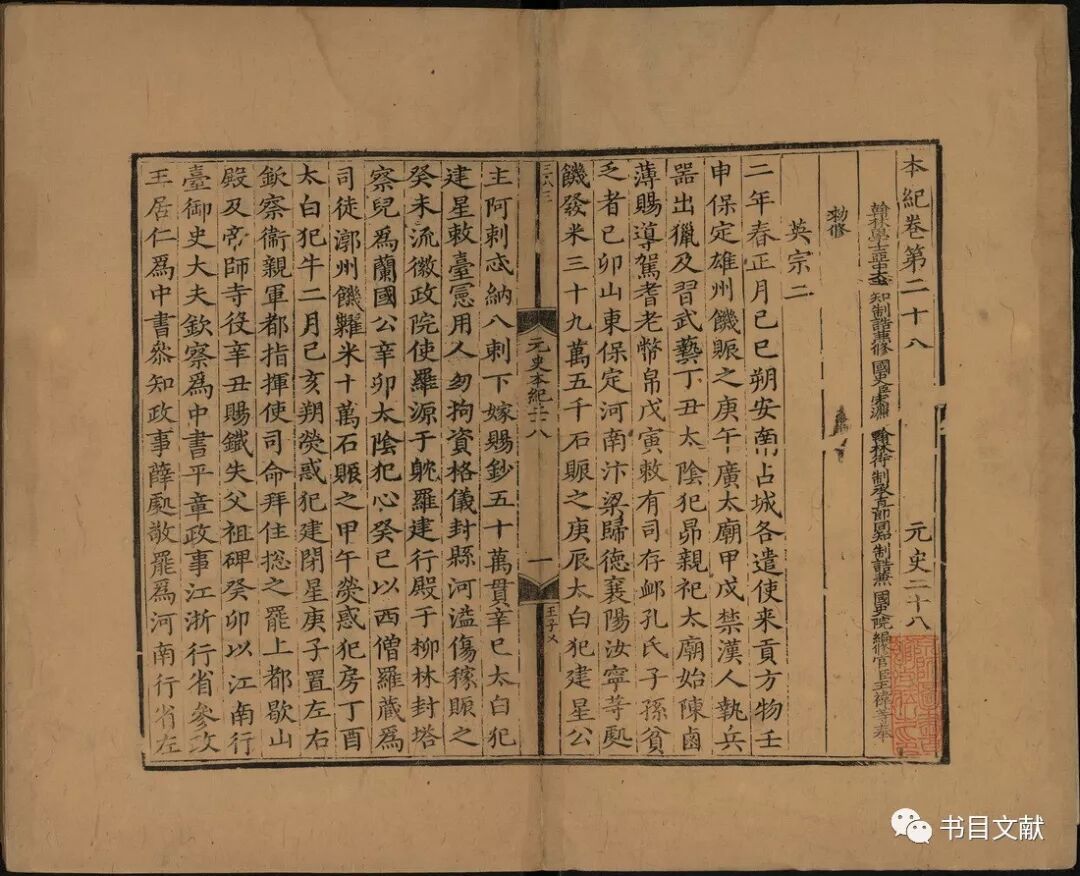 本紀卷第二十八 元史二十八
翰林學士亞中大夫知制誥兼修國史臣宋濂 翰林待制承直郎同知制誥兼國史院編修官臣王禕等奉
勑修
英宗二
二年春正月己巳朔安南占城各遣使来貢方物壬
申保定雄州饑賑之庚午廣太廟甲戌禁漢人執兵
器出獵及習武藝丁丑太陰犯昴親祀太廟始陳鹵
薄賜導駕耆老幣帛戊寅敕有司存邺孔氏子孫貧
乏者己卯山東保定河南汴梁歸德襄陽汝寧等處
饑發米三十九萬五千石賑之庚辰太白犯建星公
三八三
元史本紀二十八
一
主阿剌忒納八剌下嫁賜鈔五十萬貫辛巳太白犯
建星敕臺憲用人勿拘資格儀封縣河溢傷稼賑之
癸未流徽政院使羅源于躭羅建行殿于柳林封塔
察兒為蘭國公辛卯太陰犯心癸巳以西僧羅藏為
司徒漷州饑糶米十萬石賑之甲午熒惑犯房丁酉
太白犯牛二月己亥朔熒惑犯建閉星庚子置左右
欽察衞親軍都指揮使司命拜住揔之罷上都歇山
殿及帝師寺役辛丑賜鐵失父祖碑癸卯以江南行
臺御史大夫欽察為中書平章政事江浙行省參政
王居仁為中書叅知政事薛處敬罷為河南行省左
书目文献